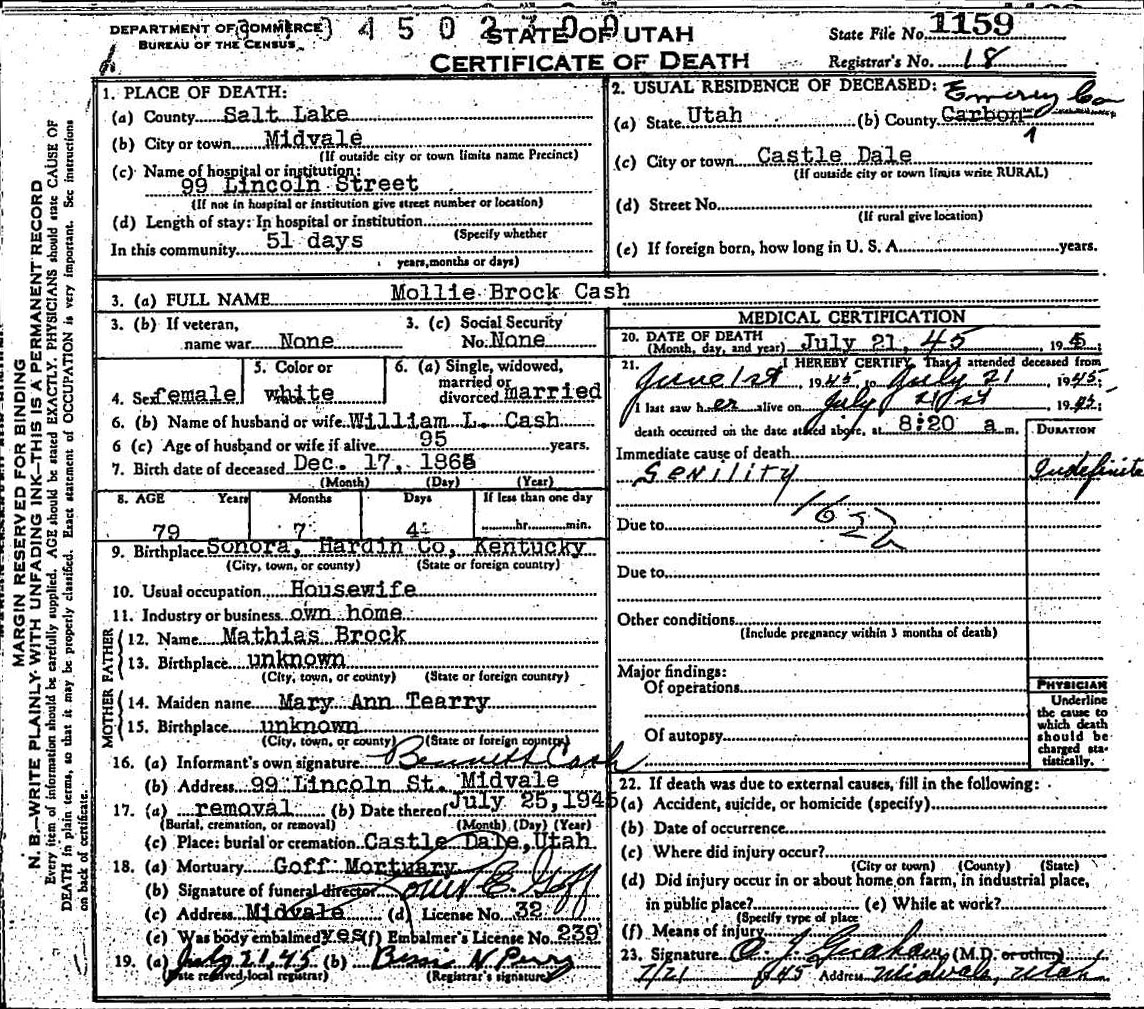 DEPARTMENT OF COMMERCE
BUREAU OF THE CENSUS
4 5 0 2 7 0 0
STATE OF UTAH
CERTIFICATE OF DEATH
State File No. 1159
Registrar's No. 18
MARGIN RESERVED FOR BINDING
N. B.—WRITE PLAINLY WITH UNFADING INK—THIS IS A PERMANENT RECORD
Every item of information should be carefully supplied. AGE should be stated EXACTLY. PHYSICIANS should state CAUSE OF
DEATH in plain terms, so that it may be properly classified. Exact statement of OCCUPATION is very important. See instructions
on back of certificate.
1. PLACE OF DEATH:
(a) County Salt Lake
(b) City or town Midvale
(If outside city or town limits name Precinct)
(c) Name of hospital or institution:
99 Lincoln Street
(If not in hospital or institution give street number or location)
(d) Length of stay: In hospital or institution
(Specify whether
In this community 51 days
years, months or days)
2. USUAL RESIDENCE OF DECEASED: Emery Co
(a) State Utah (b) County Carbon
1
(c) City or town Castle Dale
(If outside city or town limits write RURAL)
(d) Street No.
(If rural give location)
(e) If foreign born, how long in U. S. A. years.
3. (a) FULL NAME Mollie Brock Cash
3. (b) If veteran, name war None
3. (c) Social Security No. None
4. Sex female
5. Color or white
6. (a) Single, widowed, married or divorced married
6. (b) Name of husband or wife William L. Cash
6 (c) Age of husband or wife if alive 95 years.
7. Birth date of deceased Dec. 17, 1865
(Month) (Day) (Year)
8. AGE Years Months Days If less than one day
79 7 4 hr. min.
9. Birthplace Sonora, Hardin Co, Kentucky
(City, town, or county) (State or foreign country)
10. Usual occupation Housewife
11. Industry or business own home
FATHER
12. Name Mathias Brock
13. Birthplace unknown
(City, town, or county) (State or foreign country)
MOTHER
14. Maiden name Mary Ann Tearry
15. Birthplace unknown
(City, town, or county) (State or foreign country)
16. (a) Informant's own signature Bennett Cash
(b) Address 99 Lincoln St. Midvale
17. (a) removal (b) Date thereof July 25, 1945
(Burial, cremation, or removal) (Month) (Day) (Year)
(c) Place: burial or cremation Castle Dale, Utah
18. (a) Mortuary Goff Mortuary
(b) Signature of funeral director E. Goff
(c) Address Midvale (d) License No. 32
(e) Was body embalmed yes (f) Embalmer's License No. 239
19. (a) July 21, 45 (b) Bessie N Perry
(Date received local registrar) (Registrar's signature)
MEDICAL CERTIFICATION
20. DATE OF DEATH July 21, 45 19 45
(Month, day, and year)
21. I HEREBY CERTIFY, That I attended deceased from
June 1st, 1945 to July 21, 1945;
I last saw her alive on July 21st 1945;
death occurred on the date stated above, at 8:20 a m.
DURATION
Immediate cause of death
Senility Indefinite
162
Due to
Due to
Other conditions
(Include pregnancy within 3 months of death)
Major findings:
Of operations
Of autopsy
PHYSICIAN
Underline
the cause to
which death
should be
charged sta-
tistically.
22. If death was due to external causes, fill in the following:
(a) Accident, suicide, or homicide (specify)
(b) Date of occurrence
(c) Where did injury occur?
(City or town) (County) (State)
(d) Did injury occur in or about home, on farm, in industrial place,
in public place? (e) While at work?
(Specify type of place
(f) Means of injury
23. Signature O. J. Graham (M.D. or other)
7/21 1945 Address Midvale, Utah